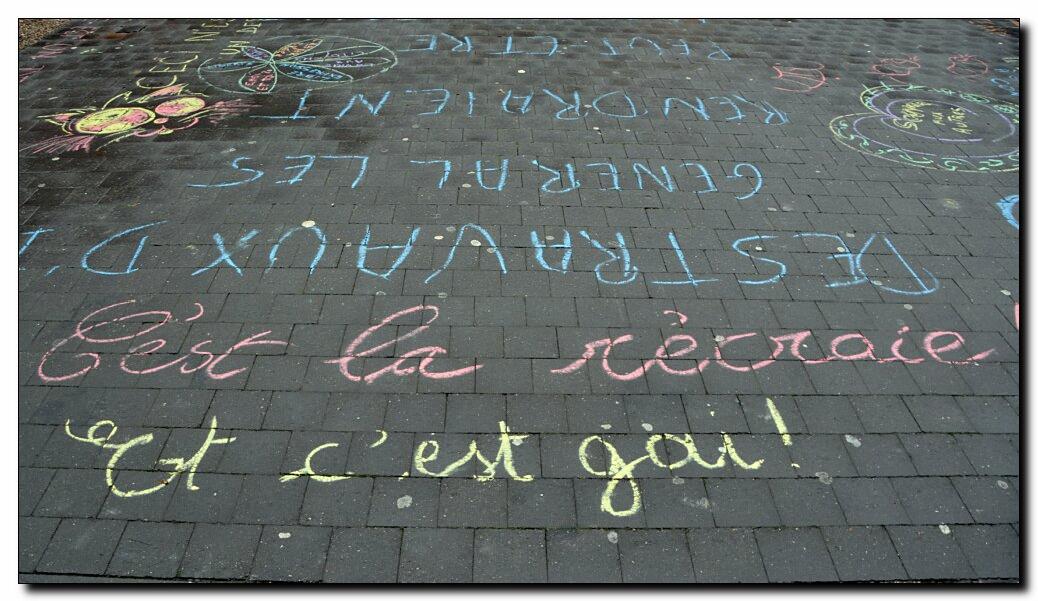 C'est la rècraie
Et c'est gai!
DES TRAVAUX D'I
GENERAL LES
RENDRAIENT
PEUT-ETRE
CECI N'ES